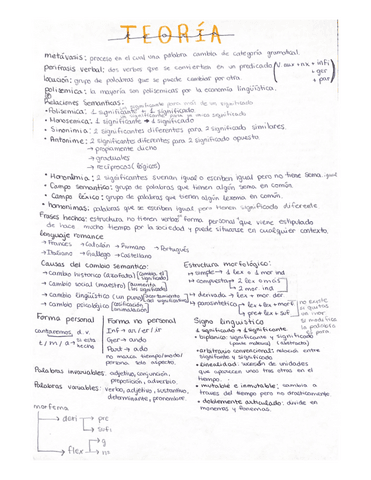 TEORÍA
metávasis: proceso en el cual una palabra cambia de categoría gramatical.
perífrasis verbal: dos verbos que se convierten en un predicado (V. aux + nx + inf
+ ger
+ par)
locución: grupo de palabras que se puede cambiar por otra
polisemica: la mayoría son polisemicas por la economía lingüística.
Relaciones Semanticas:
• Polisemica: 1 significante + 1 significado
• Monosemica: 1 significante → 1 significado
• Sinonimia: 2 significantes diferentes para 2 significado similares.
• Antonime: 2 significantes diferentes para 2 significado opuesto.
→ propiamente dicho
→ graduales
→ recíprocas (lógicos)
• Homonimia: 2 significantes suenan igual o escriben igual pero no tiene sema igual
• Campo semantico: grupo de palabras que tienen algún sema en común
• Campo léxico: grupo de palabras que tienen algún lexema en común.
• homonimas: palabras que se escriben igual pero tienen significado diferente
Frases hechas: estructura no tienen verbos en forma personas que viene estipulado
de hace mucho tiempo por la sociedad y puede situarse en cualquier contexto.
Lenguaje romance
→ Francés → Catalán → Rumano → Portugués
→ Italiano → Gallego → Castellano
Causas del cambio Semantico:
→ cambio historico (azafata)
→ cambio social (maestro)
→ cambio lingüístico (un puro)
→ cambio psicologico (zorra)
Estructura morfológico:
→ simple → 1 lex o 1 mor ind
→ compuesto → 2 lex o más
2 mor. ind
→ derivada → lex + mor der
→ parasintético → lex + lex + mor
→ pre + lex + suf
no existe
si quitas
un mor.
se modifica
la palabra
Forma personal
cantaremos d.v.
t / m / a → si esta
hecho
Forma no personal
Inf → ar / er / ir
Ger → ando
Part → ado
no marca tiempo/modo/
persona. solo aspecto.
Signo linguistico
1 significado → 1 significante
• biplanico: significante y significado
• arbitrario convencional: relación entre
significante y significado
• linealidad: sucesión de unidades
que aparecen unas tras otras en el
tiempo.
• mutable e inmutable: cambia a
traves del tiempo pero no drasticamente.
• doblemente articulado: divide en
monemas y fonemas.
Palabras invariables: adjetivo, conjunción,
preposición, adverbio.
Palabras variables: verbo, adjetivo, sustantivo,
determinante, pronombre.
morfema
→ deri → pre
→ suf
→ flex → g
→ n